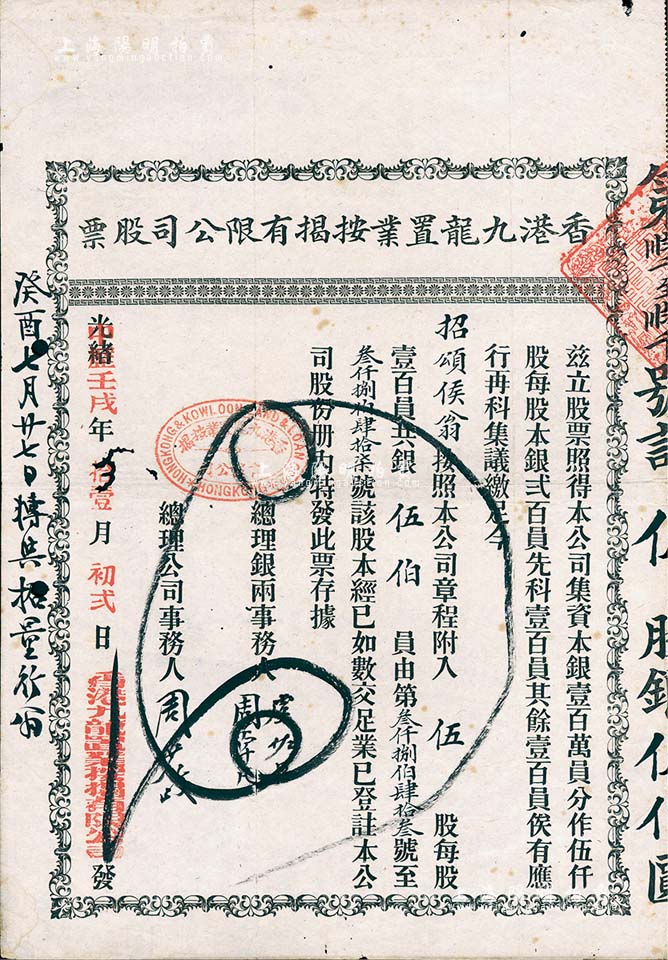 上海陽明拍賣
www.yangmingauction.com
香港九龍置業按揭有限公司股票
茲立股票照得本公司集資本銀壹百萬員分作伍仟
股每股本銀弍百員先科壹百員其餘壹百員俟有應
行再科集議繳足今
招頌侯翁按照本公司章程附入 伍 股每股
壹百員共銀 伍佰 員由第叁仟捌伯肆拾叁號至
叁仟捌伯肆拾柒號該股本經已如數交足業已登註本公
司股份册內特發此票存據
總理銀兩事務人 周
總理公司事務人 周
光緒壬戌年拾壹月初弍日 香港九龍置業按揭有限公司 發
癸酉七月廿七日轉與招量行翁
HONGKONG & KOWLOON LAND & LOAN
HONGKONG
號 伍股銀伍佰圓